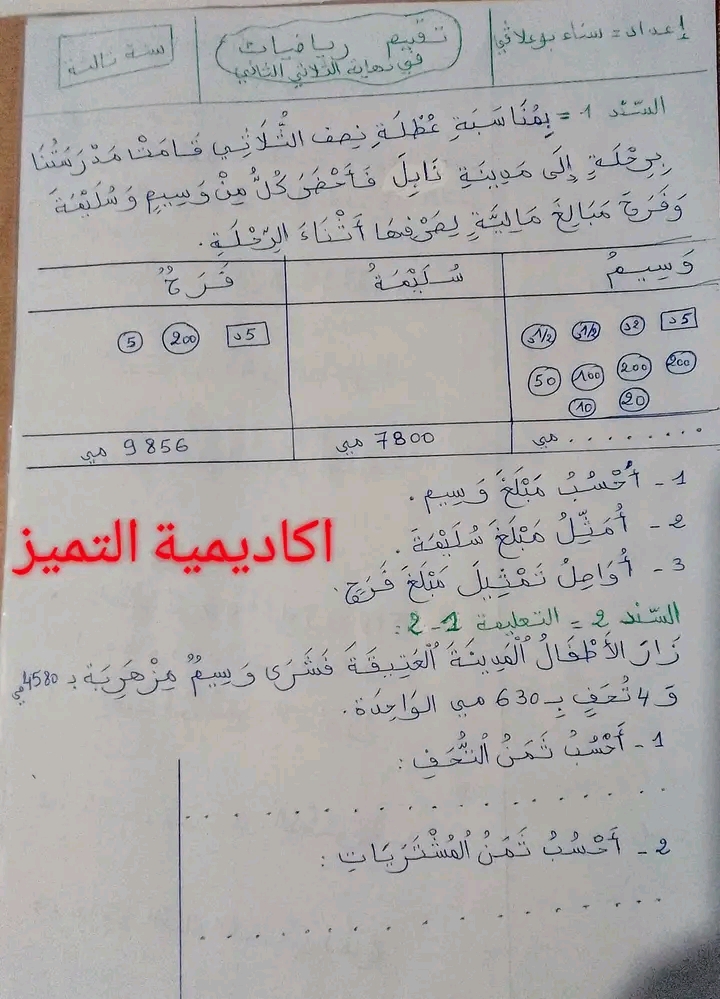 إعداد = سناء بوعلاقي
تقييم رياضيات
في نهاية الثلاثي الثاني
سنة ثالثة
السّند 1 = بِمُنَاسَبَةِ عُطْلَةِ نِصْفِ الثُّلَاثِي قَامَتْ مَدْرَسَتُنَا
بِرِحْلَةٍ إِلَى مَدِينَةِ نَابِلَ فَأَحْضَرَ كُلٌّ مِنْ وَسِيمٍ وَسُلَيْمَةَ
وَفَرَحَ مَبَالِغَ مَالِيَّةٍ لِصَرْفِهَا أَثْنَاءَ الرِّحْلَةِ.
وَسِيمُ سُلَيْمَةُ فَرَحٌ
5د 2د 1/2د 1/2د
200 200 100 50
20 10
5د 200 5
........ مي 7800 مي 9856 مي
1 - أَحْسُبُ مَبْلَغَ وَسِيمٍ.
2 - أُمَثِّلُ مَبْلَغَ سُلَيْمَةَ.
3 - أُوَاصِلُ تَمْثِيلَ مَبْلَغَ فَرَحٍ.
اكاديمية التميز
السّند 2 = التعليمة 1-2:
زَارَ الأَطْفَالُ الْمَدِينَةَ الْعَتِيقَةَ فَشَرَى وَسِيمٌ مِزْهَرِيَة بـ 4580مي
وَ 4 تُحَفٍ بِـ 630 مي الوَاحِدَة.
1 - أَحْسُبُ ثَمَنُ التُّحَفِ :
..................
2 - أَحْسُبُ ثَمَنُ الْمُشْتَرَيَاتِ :
..................